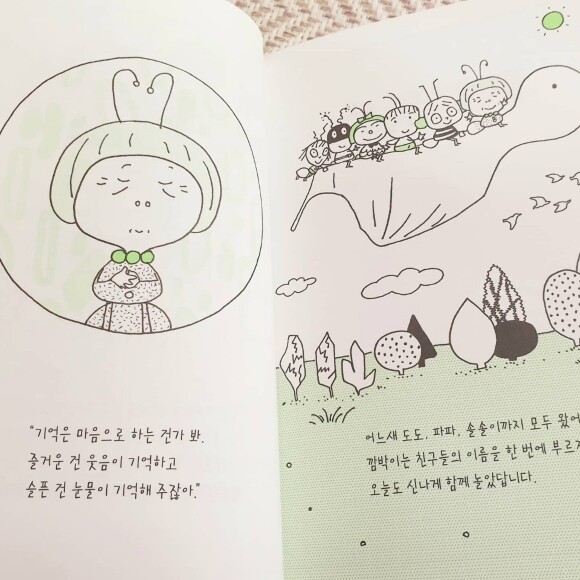 "기억은 마음으로 하는 건가 봐.
즐거운 건 웃음이 기억하고
슬픈 건 눈물이 기억해 주잖아."
어느새 도도, 파파, 솔솔이까지 모두 왔어
깜박이는 친구들의 이름을 한 번에 부르지
오늘도 신나게 함께 놀았답니다.